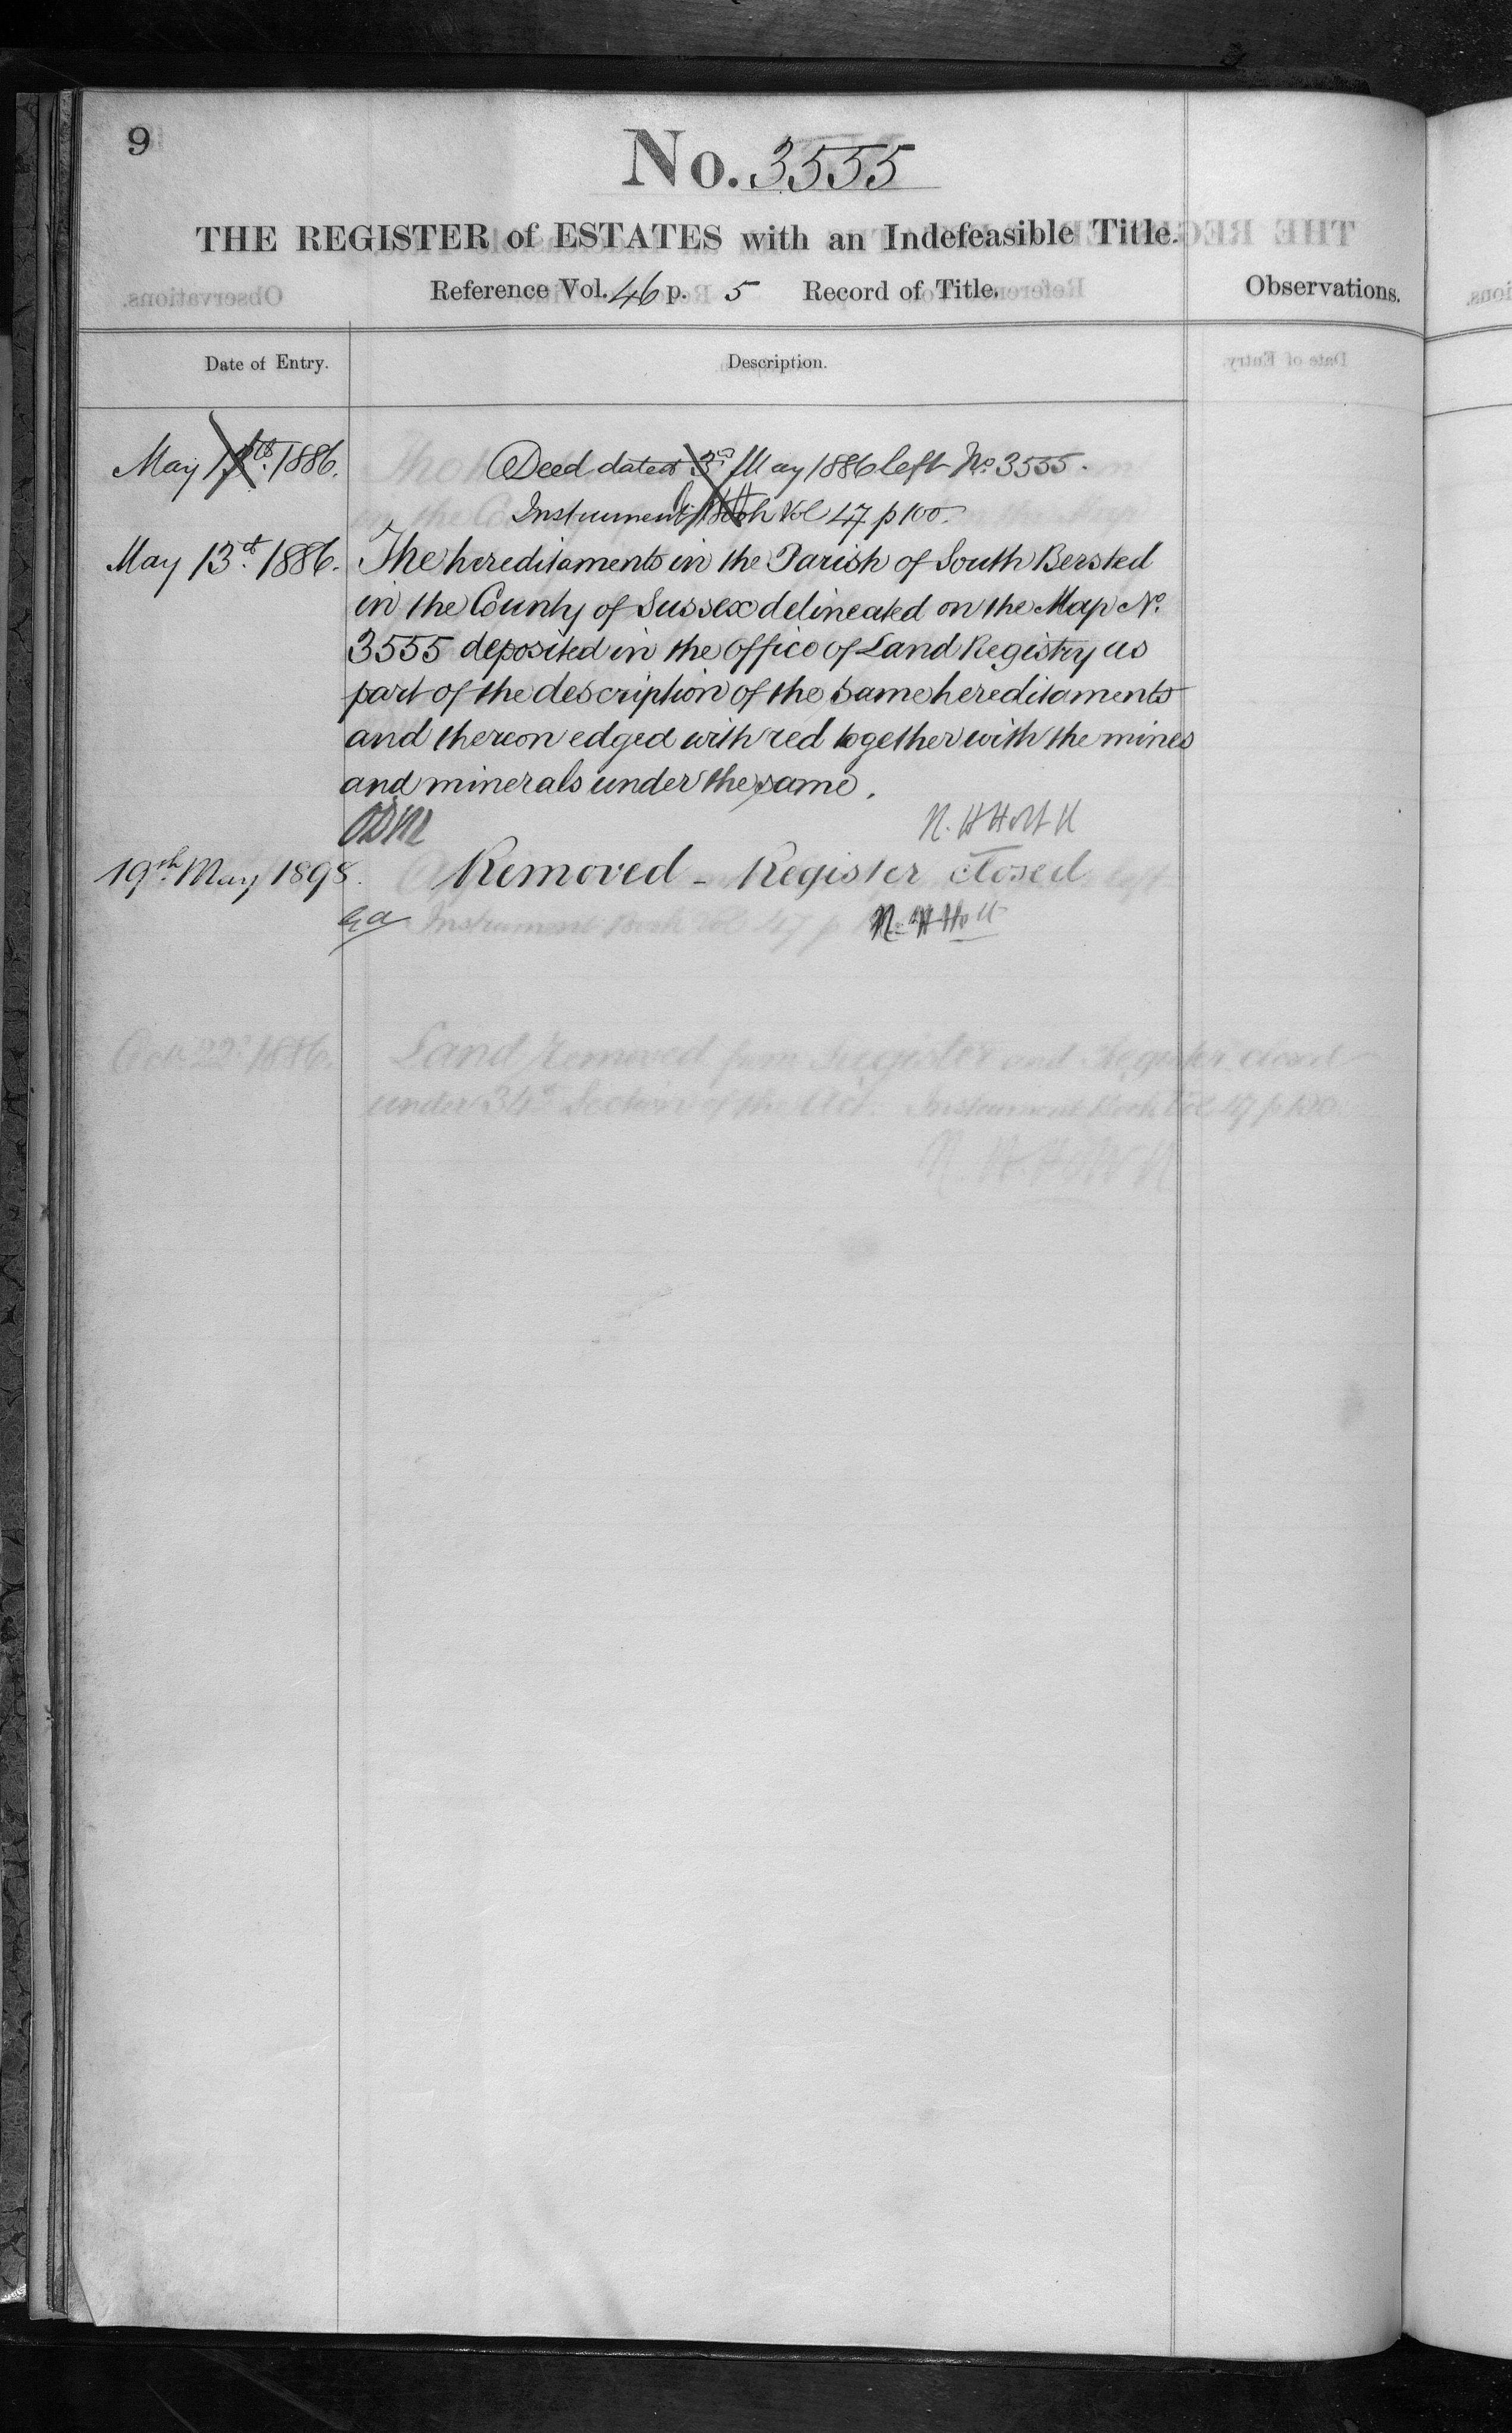 9
No. 3555
THE REGISTER of ESTATES with an Indefeasible Title.
Reference Vol. 46 p. 5 Record of Title.
Observations.
Date of Entry.
Description.
May 1886. Deed dated 3rd May 1886 left No. 3555.
Instrument Book Vol 47 p 100.
May 13th 1886. The hereditaments in the Parish of South Bersted
in the County of Sussex delineated on the Map No.
3555 deposited in the office of Land Registry as
part of the description of the same hereditaments
and thereon edged with red together with the mines
and minerals under the same.
N. H Holt
19th May 1898. Removed - Register closed
N. H Holt